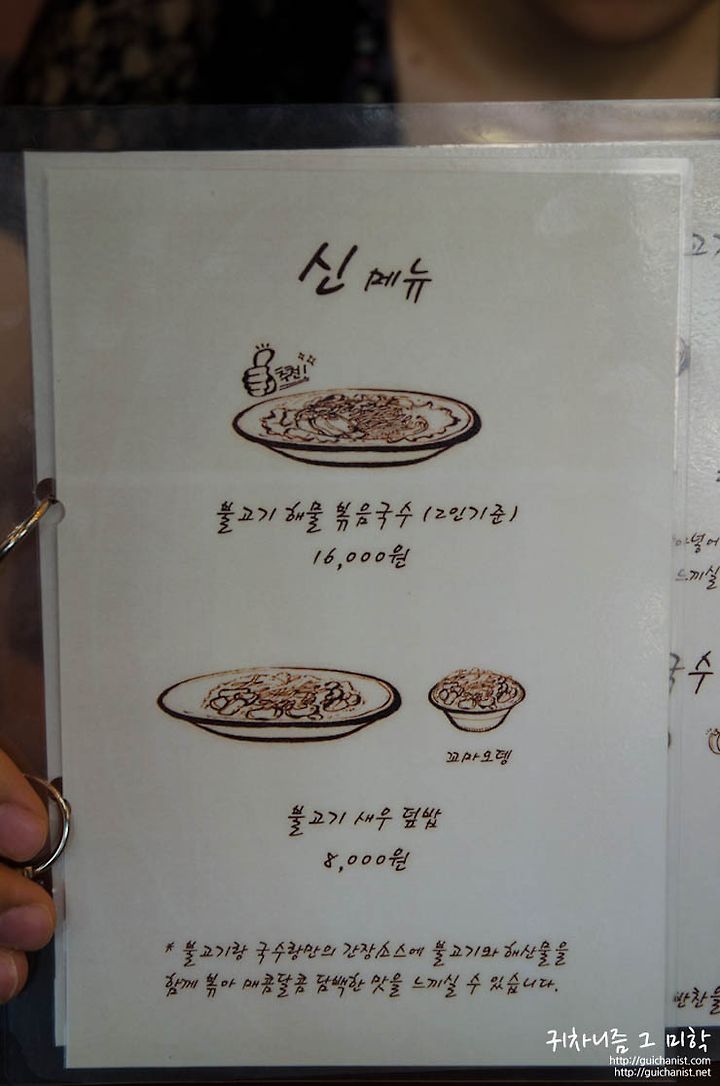 신 메뉴
추천!
불고기 해물 볶음국수 (2인기준)
16,000원
꼬마오뎅
불고기 새우 덮밥
8,000원
* 불고기랑 국수랑만의 간장소스에 불고기와 해산물을
함께 볶아 매콤달콤 담백한 맛을 느끼실 수 있습니다.
고기
느끼실
국수
반찬을
귀차니즘 그 미학
http://guichanist.com
http://guichanist.net